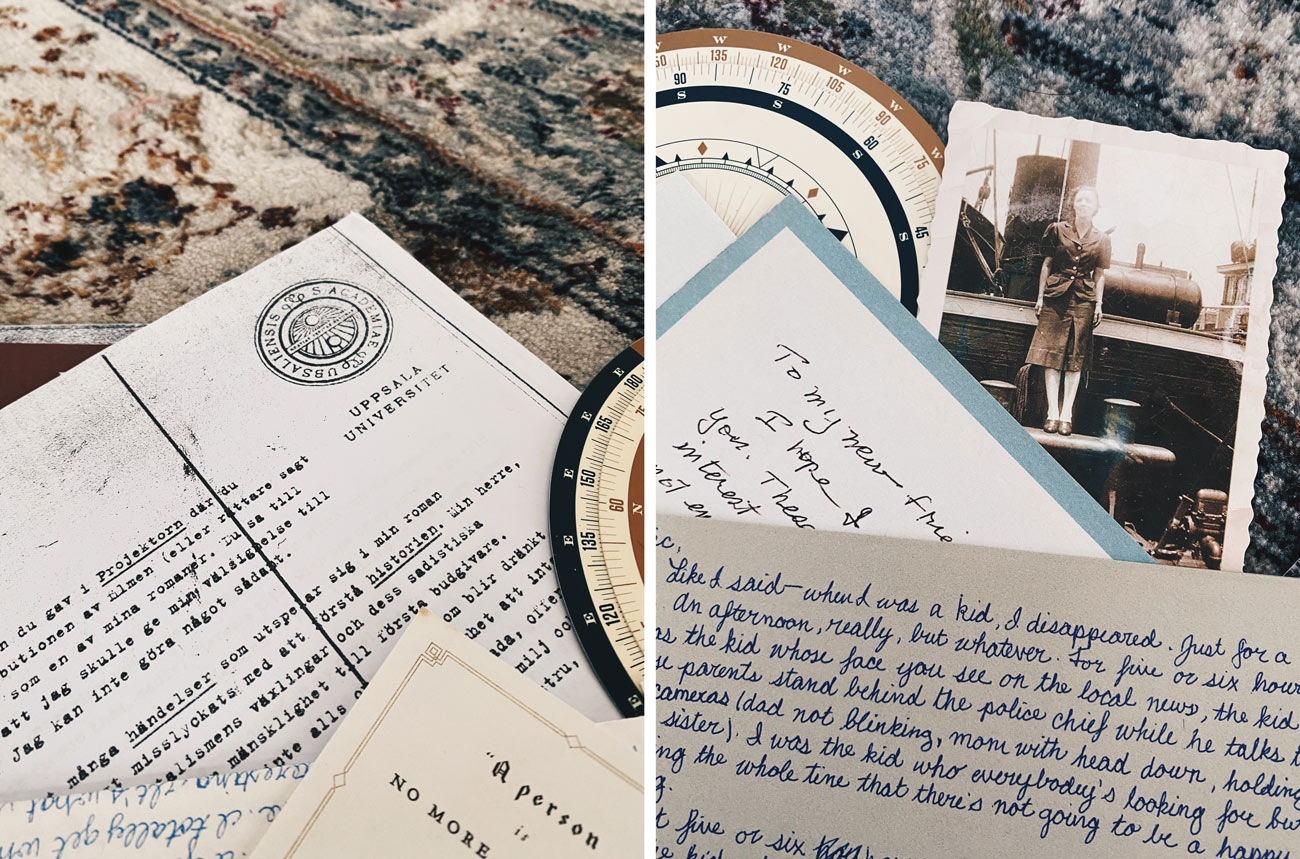 UBSALIENSIS
S. ACADEMIAE
UPPSALA
UNIVERSITET
n du gav i Projektorn där du
butionen av Elmen (eller rättare sagt
som en av mina romaner. Du sa till
att jag skulle ge min välsignelse till
Jag kan inte göra något sådant.
många händelser som utspelar sig i min roman
misslyckats med att förstå historien. Min herre,
talismens växlingar och dess sadistiska
mänsklighet till första budgivare.
om blir dränkt
het att int
nda, olje
milj oc
tru,
inte alls
it totally get
"A person
is
NO MORE
E
180
E
165
E
150
E
135
E
120
E
60
N
W
W
W
W
W
135
120
105
90
75
45
90
75
60
S
S
S
S
To my new frie
I hope I
you. These
interest
not en
Like I said—when I was a kid, I disappeared. Just for a
An afternoon, really, but whatever. For five or six hour
as the kid whose face you see on the local news, the kid
se parents stand behind the police chief while he talks t
cameras (dad not blinking, mom with head down, holding
sister). I was the kid who everybody's looking for bu
ing the whole tine that there's not going to be a happy
g.
t five or six